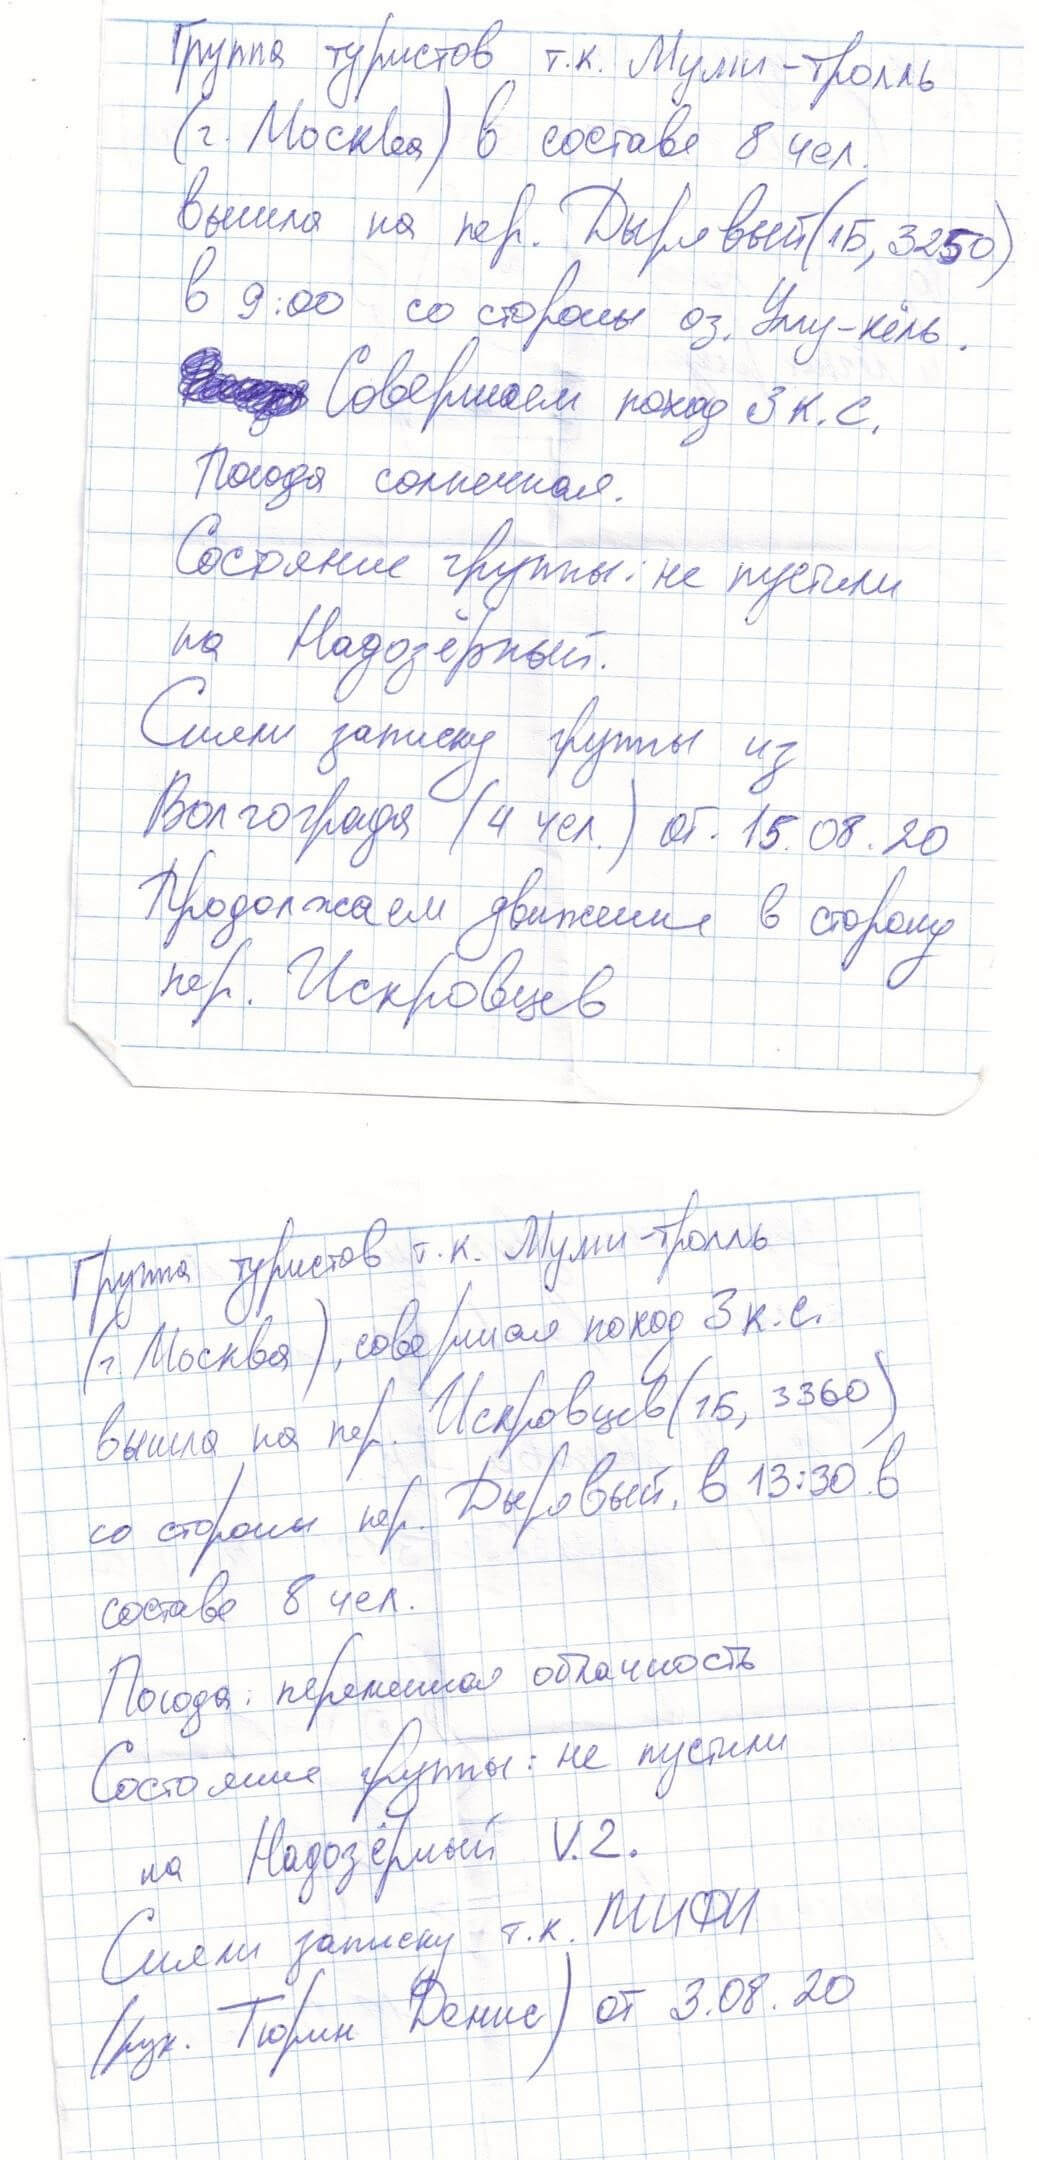 Группа туристов т.к. Муми-тролль
(г. Москва) в составе 8 чел.
вышла на пер. Дырявый (1Б, 3250)
в 9:00 со стороны оз. Уллу-кёль.
Совершаем поход 3 к.с.
Погода солнечная.
Состояние группы: не пустили
на Надозёрный.
Сняли записку группы из
Волгограда (4 чел.) от. 15.08.20
Продолжаем движение в сторону
пер. Искровцев
Группа туристов т.к. Муми-тролль
(г. Москва), совершая поход 3 к.с.
вышла на пер. Искровцев (1Б, 3360)
со стороны пер. Дырявый. в 13:30 в
составе 8 чел.
Погода: переменная облачность
Состояние группы: не пустили
на Надозёрный V.2.
Сняли записку т.к. МИФИ
(рук. Тюрин Денис) от 3.08.20